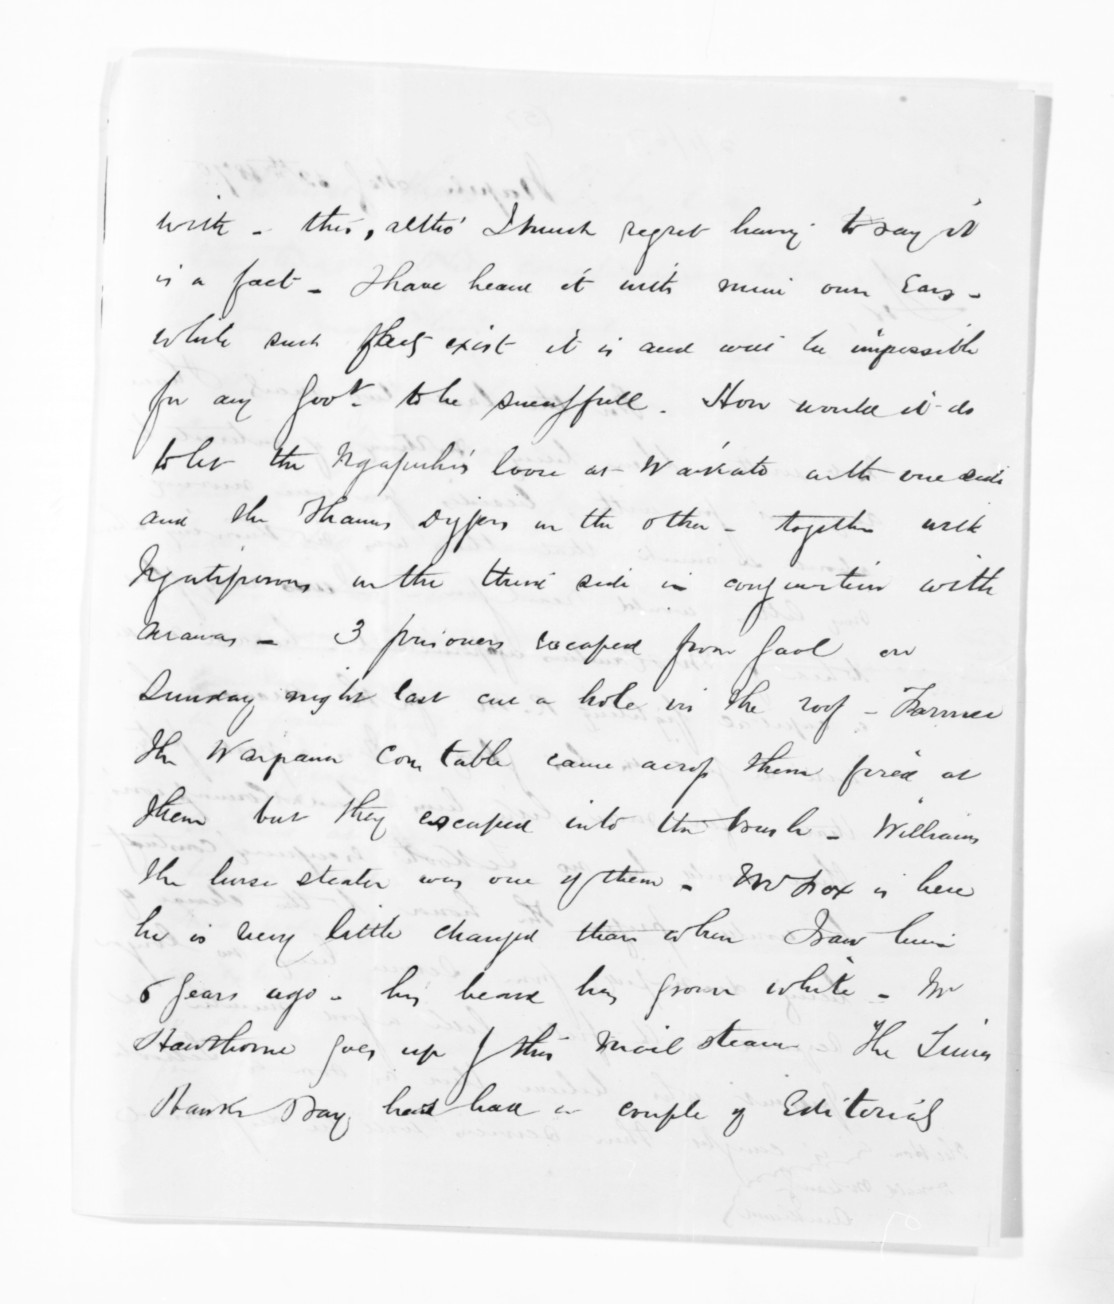 with - this, altho' I much regret having to say it
is a fact - I have heard it with mine own Ears -
while such facts exist it is and will be impossible
for any Govt. to be successfull. How would it do
to let the Ngapuhis loose at Waikato on the one side
and the Thames Diggers on the other - together with
Ngatiporou on the third side in conjunction with
Arawas - 3 prisoners escaped from Gaol on
Sunday night last cut a hole in the roof - Farmer
the Waipawa Constable came across them fired at
them but they escaped into the bush - Williams
the horse stealer was one of them - Mr Fox is here
he is very little changed than when I saw him
6 years ago - his beard has grown white - Mr
Hawthorne goes up p this mail steamer The Times
Hawkes Bay have had a couple of Editorials